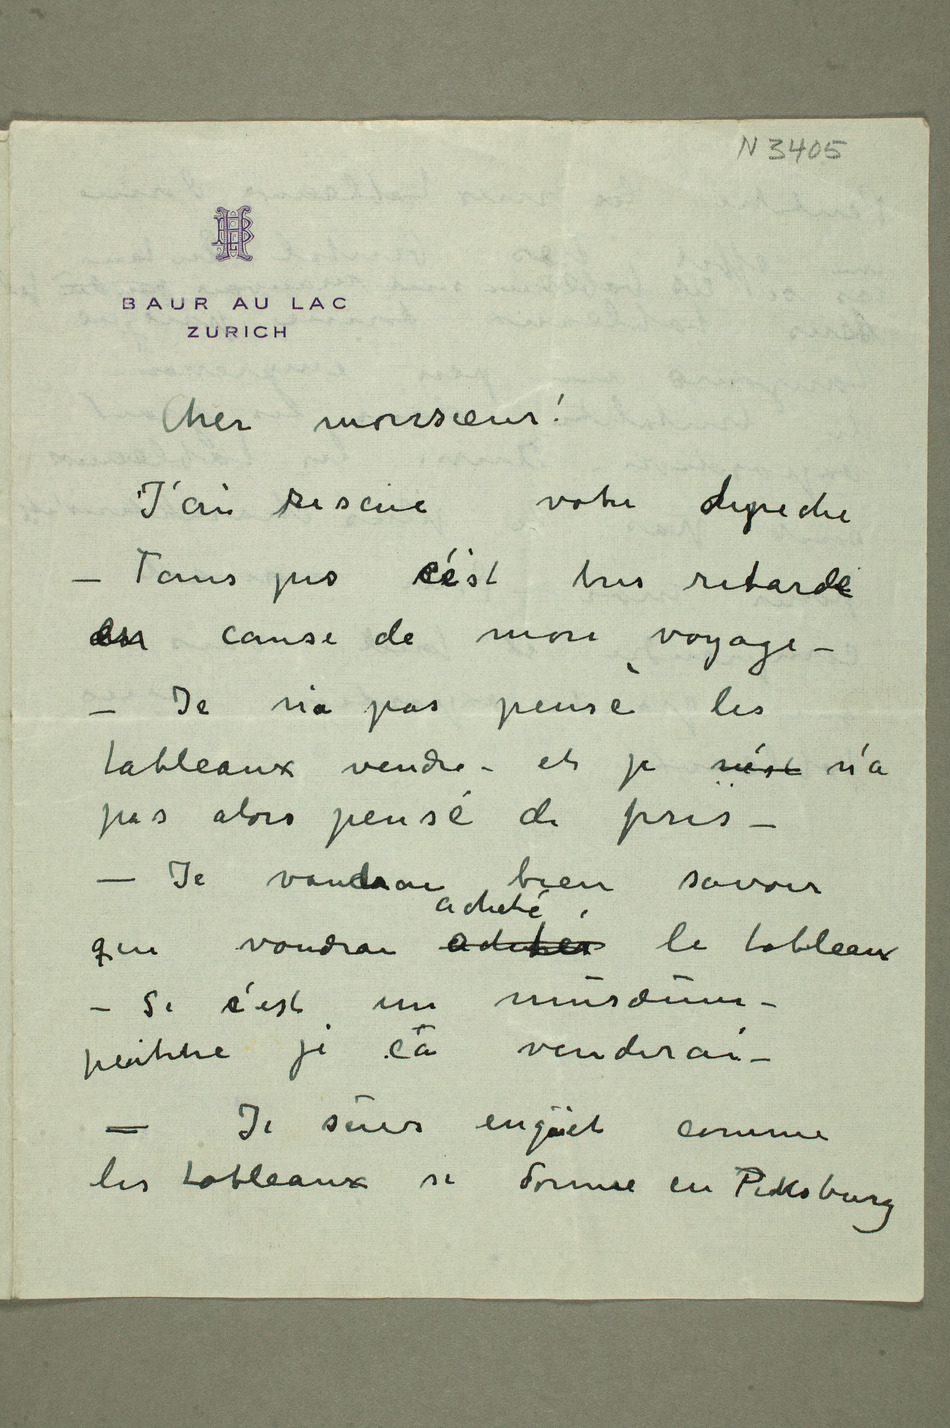 N 3405
BAUR AU LAC
ZÜRICH
Cher monsieur!
J'ai resçue votre depeche
– Tans pis c'ést tres retardé
en cause de mon voyage –
– Je n'a pas pensé les
tableaux vendre – et je n'ést n'a
pas alors pensé de pris –
– Je voudrai bien savoir
acheté
qui voudrai acheter le tableaux
– Si c'est un musæum –
peuttre je ca venderai –
– Je suis enqiet comme
les tableaux se donne en Pittsburg